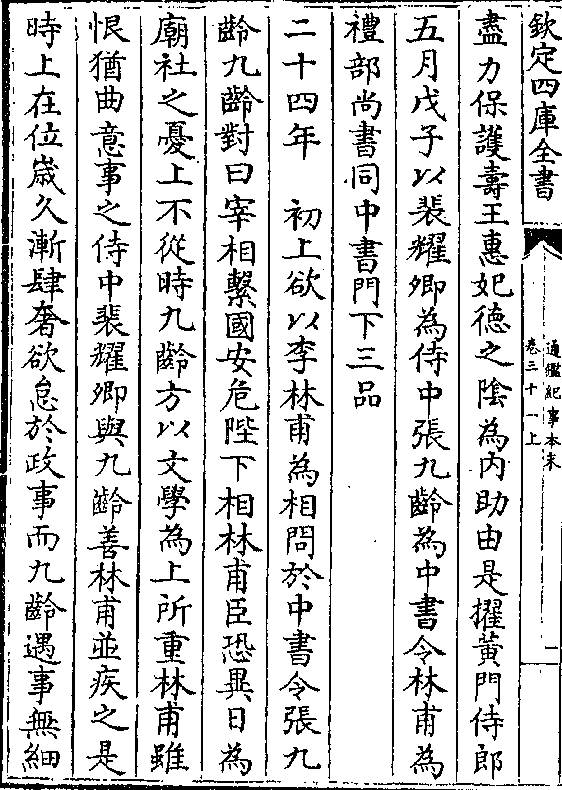 欽定四庫全書
通鑑紀事本末
卷三十一上
一
盡力保護壽王惠妃徳之陰為内助由是擢黄門侍郎
五月戊子以裴耀卿為侍中張九齡為中書令林甫為
禮部尚書同中書門下三品
二十四年 初上欲以李林甫為相問於中書令張九
齡九齡對曰宰相繫國安危陛下相林甫臣恐異日為
廟社之憂上不從時九齡方以文學為上所重林甫雖
恨猶曲意事之侍中裴耀卿與九齡善林甫並疾之是
時上在位嵗久漸肆奢欲怠於政事而九齡遇事無細